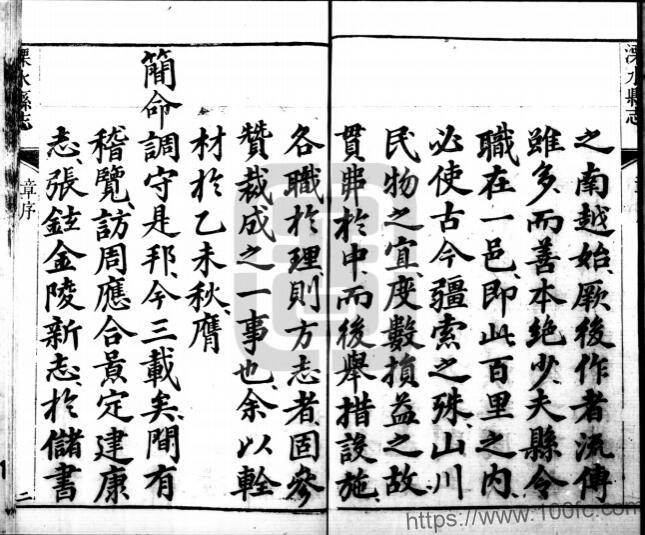 之南越始、厥後作者流傳
雖多、而善本絶少、夫縣令
職在一邑、即此百里之内、
必使古今疆索之殊、山川
民物之宜、度數損益之故
貫弗於中、而後舉措設施、
各職於理、則方志者、固參
贊裁成之一事也、余以輇
材於乙未秋、膺
簡命調守是邦、今三載矣、間有
稽覽、訪周應合景定建康
志、張鉉金陵新志、於儲書
溧水縣志
章序
二
溧水縣志
https://www.100fc.com